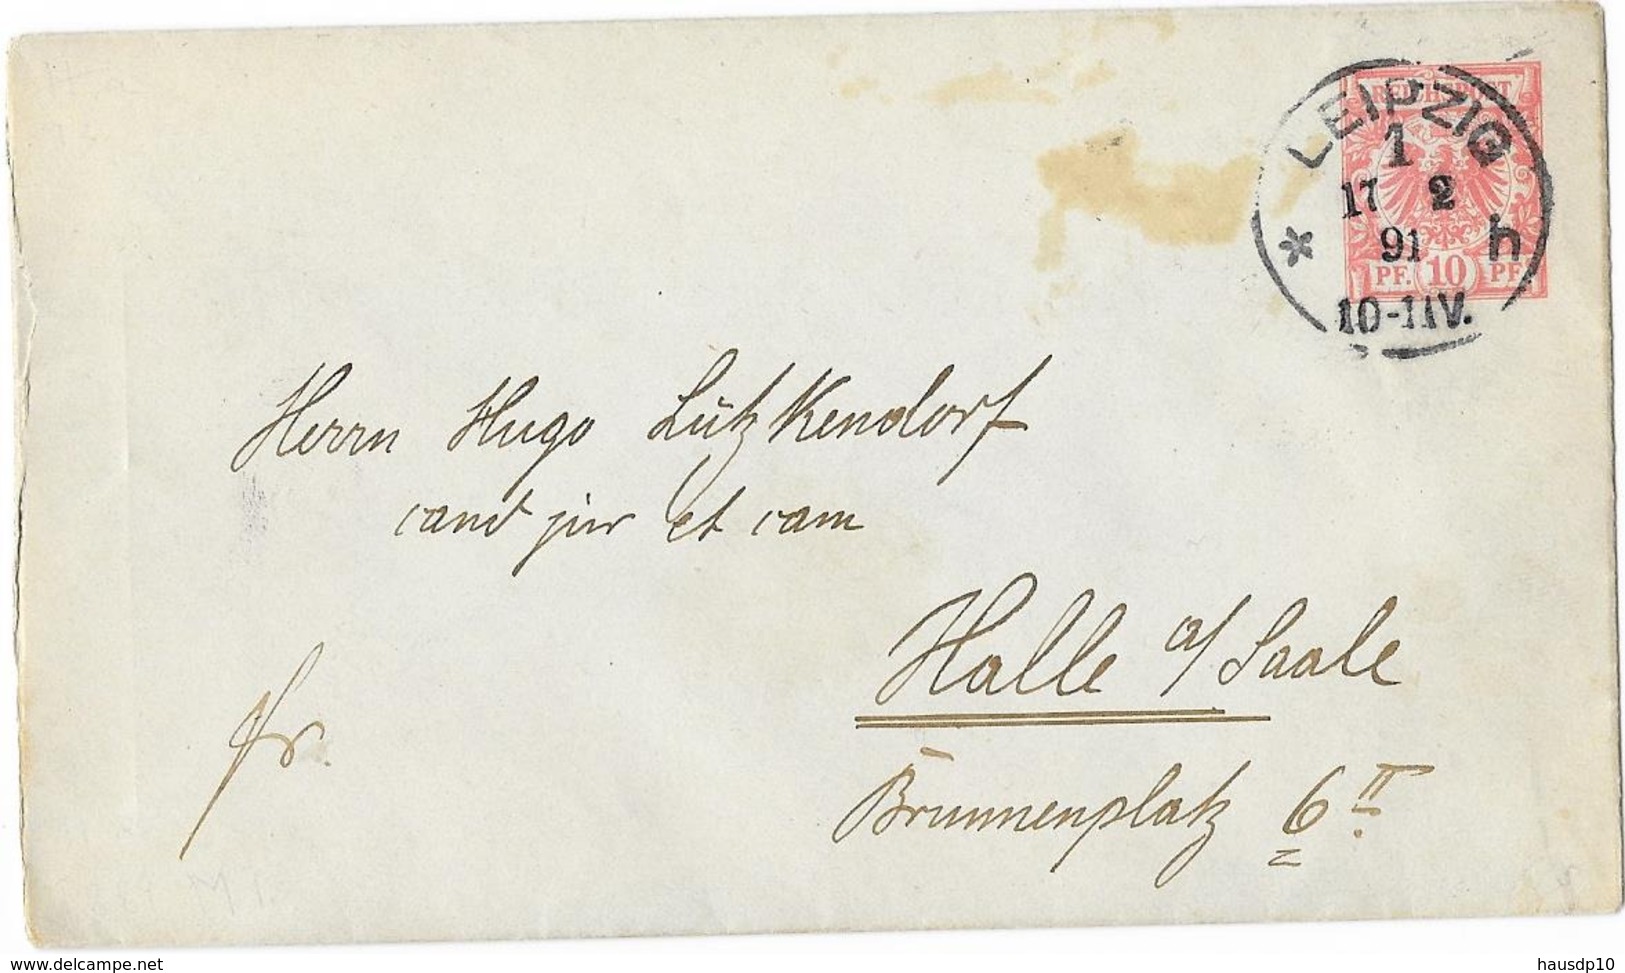 REICHSPOST
LEIPZIG
1
17 2
91
* h
PF. 10 PF.
10-11V.
Herrn Hugo Lützkendorf
cand jur et cam
Halle a/Saale
fr.
Brunnenplatz 6 II.
www.delcampe.net
hausdp10